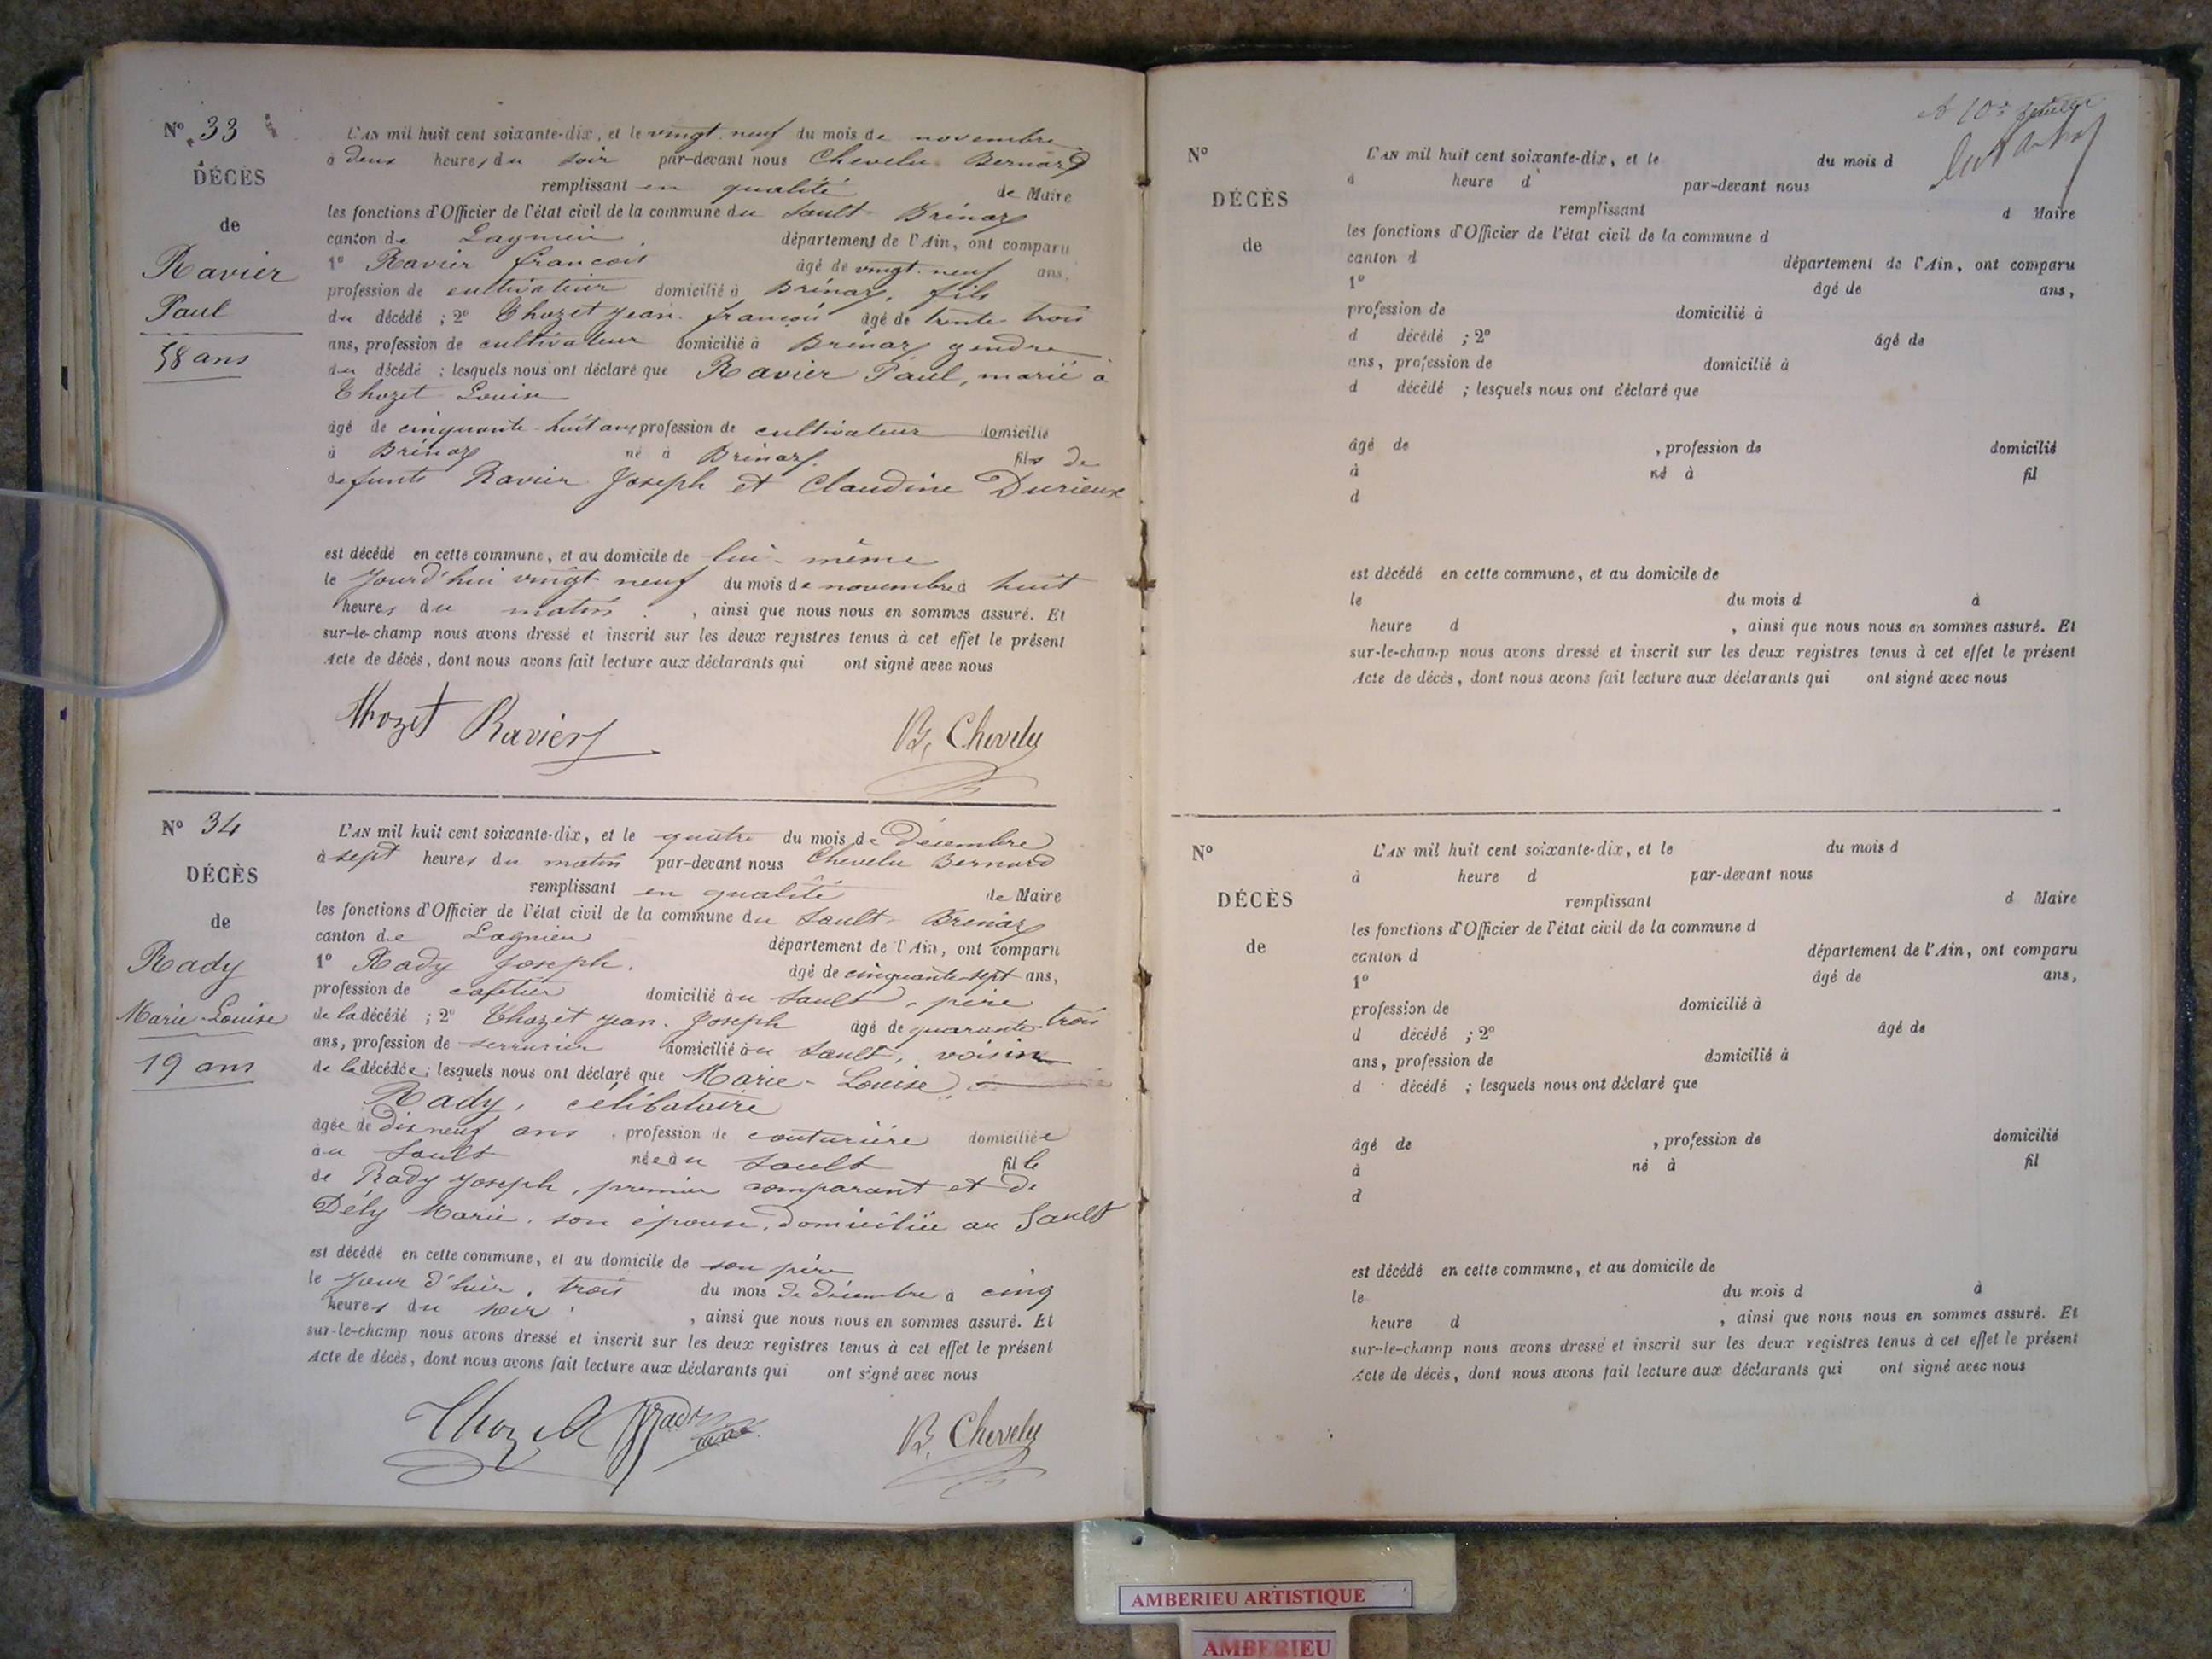 N° 33
DÉCÈS
de
Ravier
Paul
58 ans
L'AN mil huit cent soixante-dix, et le vingt-neuf du mois de novembre
à deux heures du soir par-devant nous Chevelu Bernard
remplissant en qualité de Maire
les fonctions d'Officier de l'état civil de la commune du Sault-Brénaz
canton de Lagnieu département de l'Ain, ont comparu
1° Ravier françois âgé de vingt-neuf ans,
profession de cultivateur domicilié à Brénaz, fils
du décédé ; 2° Thozet Jean-françois âgé de trente-trois
ans, profession de cultivateur domicilié à Brénaz gendre
du décédé ; lesquels nous ont déclaré que Ravier Paul, marié à
Thozet Louise
âgé de cinquante-huit ans profession de cultivateur domicilié
à Brénaz né à Brénaz fils de
defunts Ravier Joseph et Claudine Durieux
est décédé en cette commune, et au domicile de lui-même
le Jourd'hui vingt-neuf du mois de novembre à huit
heures du matin, ainsi que nous nous en sommes assuré. Et
sur-le-champ nous avons dressé et inscrit sur les deux registres tenus à cet effet le présent
Acte de décès, dont nous avons fait lecture aux déclarants qui ont signé avec nous
Thozet Ravier B. Chevelu
N° 34
DÉCÈS
de
Rady
Marie-Louise
19 ans
L'AN mil huit cent soixante-dix, et le quatre du mois de Décembre
à sept heures du matin par-devant nous Chevelu Bernard
remplissant en qualité de Maire
les fonctions d'Officier de l'état civil de la commune du Sault-Brénaz
canton de Lagnieu département de l'Ain, ont comparu
1° Rady Joseph. âgé de cinquante-sept ans,
profession de cafetier domicilié au Sault, père
de la décédé ; 2° Thozet Jean-Joseph âgé de quarante-trois
ans, profession de serrurier domicilié au Sault, voisin
de la décédée ; lesquels nous ont déclaré que Marie-Louise
Rady, célibataire
âgée de dix neuf ans, profession de couturière domiciliée
au Sault née au Sault fille
de Rady Joseph, premier comparant et de
Dély Marie, son épouse, domiciliée au Sault
est décédé en cette commune, et au domicile de son père
le Jour d'hier, trois du mois de décembre à cinq
heures du soir, ainsi que nous nous en sommes assuré. Et
sur-le-champ nous avons dressé et inscrit sur les deux registres tenus à cet effet le présent
Acte de décès, dont nous avons fait lecture aux déclarants qui ont signé avec nous
Thozet Rady B. Chevelu
N°
DÉCÈS
de
L'AN mil huit cent soixante-dix, et le du mois d
à heure d par-devant nous
remplissant d Maire
les fonctions d'Officier de l'état civil de la commune d
canton d département de l'Ain, ont comparu
1° âgé de ans,
profession de domicilié à
d décédé ; 2° âgé de
ans, profession de domicilié à
d décédé ; lesquels nous ont déclaré que
âgé de , profession de domicilié
à né à fil
d
est décédé en cette commune, et au domicile de
le du mois d à
heure d , ainsi que nous nous en sommes assuré. Et
sur-le-champ nous avons dressé et inscrit sur les deux registres tenus à cet effet le présent
Acte de décès, dont nous avons fait lecture aux déclarants qui ont signé avec nous
N°
DÉCÈS
de
L'AN mil huit cent soixante-dix, et le du mois d
à heure d par-devant nous
remplissant d Maire
les fonctions d'Officier de l'état civil de la commune d
canton d département de l'Ain, ont comparu
1° âgé de ans,
profession de domicilié à
d décédé ; 2° âgé de
ans, profession de domicilié à
d décédé ; lesquels nous ont déclaré que
âgé de , profession de domicilié
à né à fil
d
est décédé en cette commune, et au domicile de
le du mois d à
heure d , ainsi que nous nous en sommes assuré. Et
sur-le-champ nous avons dressé et inscrit sur les deux registres tenus à cet effet le présent
Acte de décès, dont nous avons fait lecture aux déclarants qui ont signé avec nous
AMBERIEU ARTISTIQUE
AMBERIEU